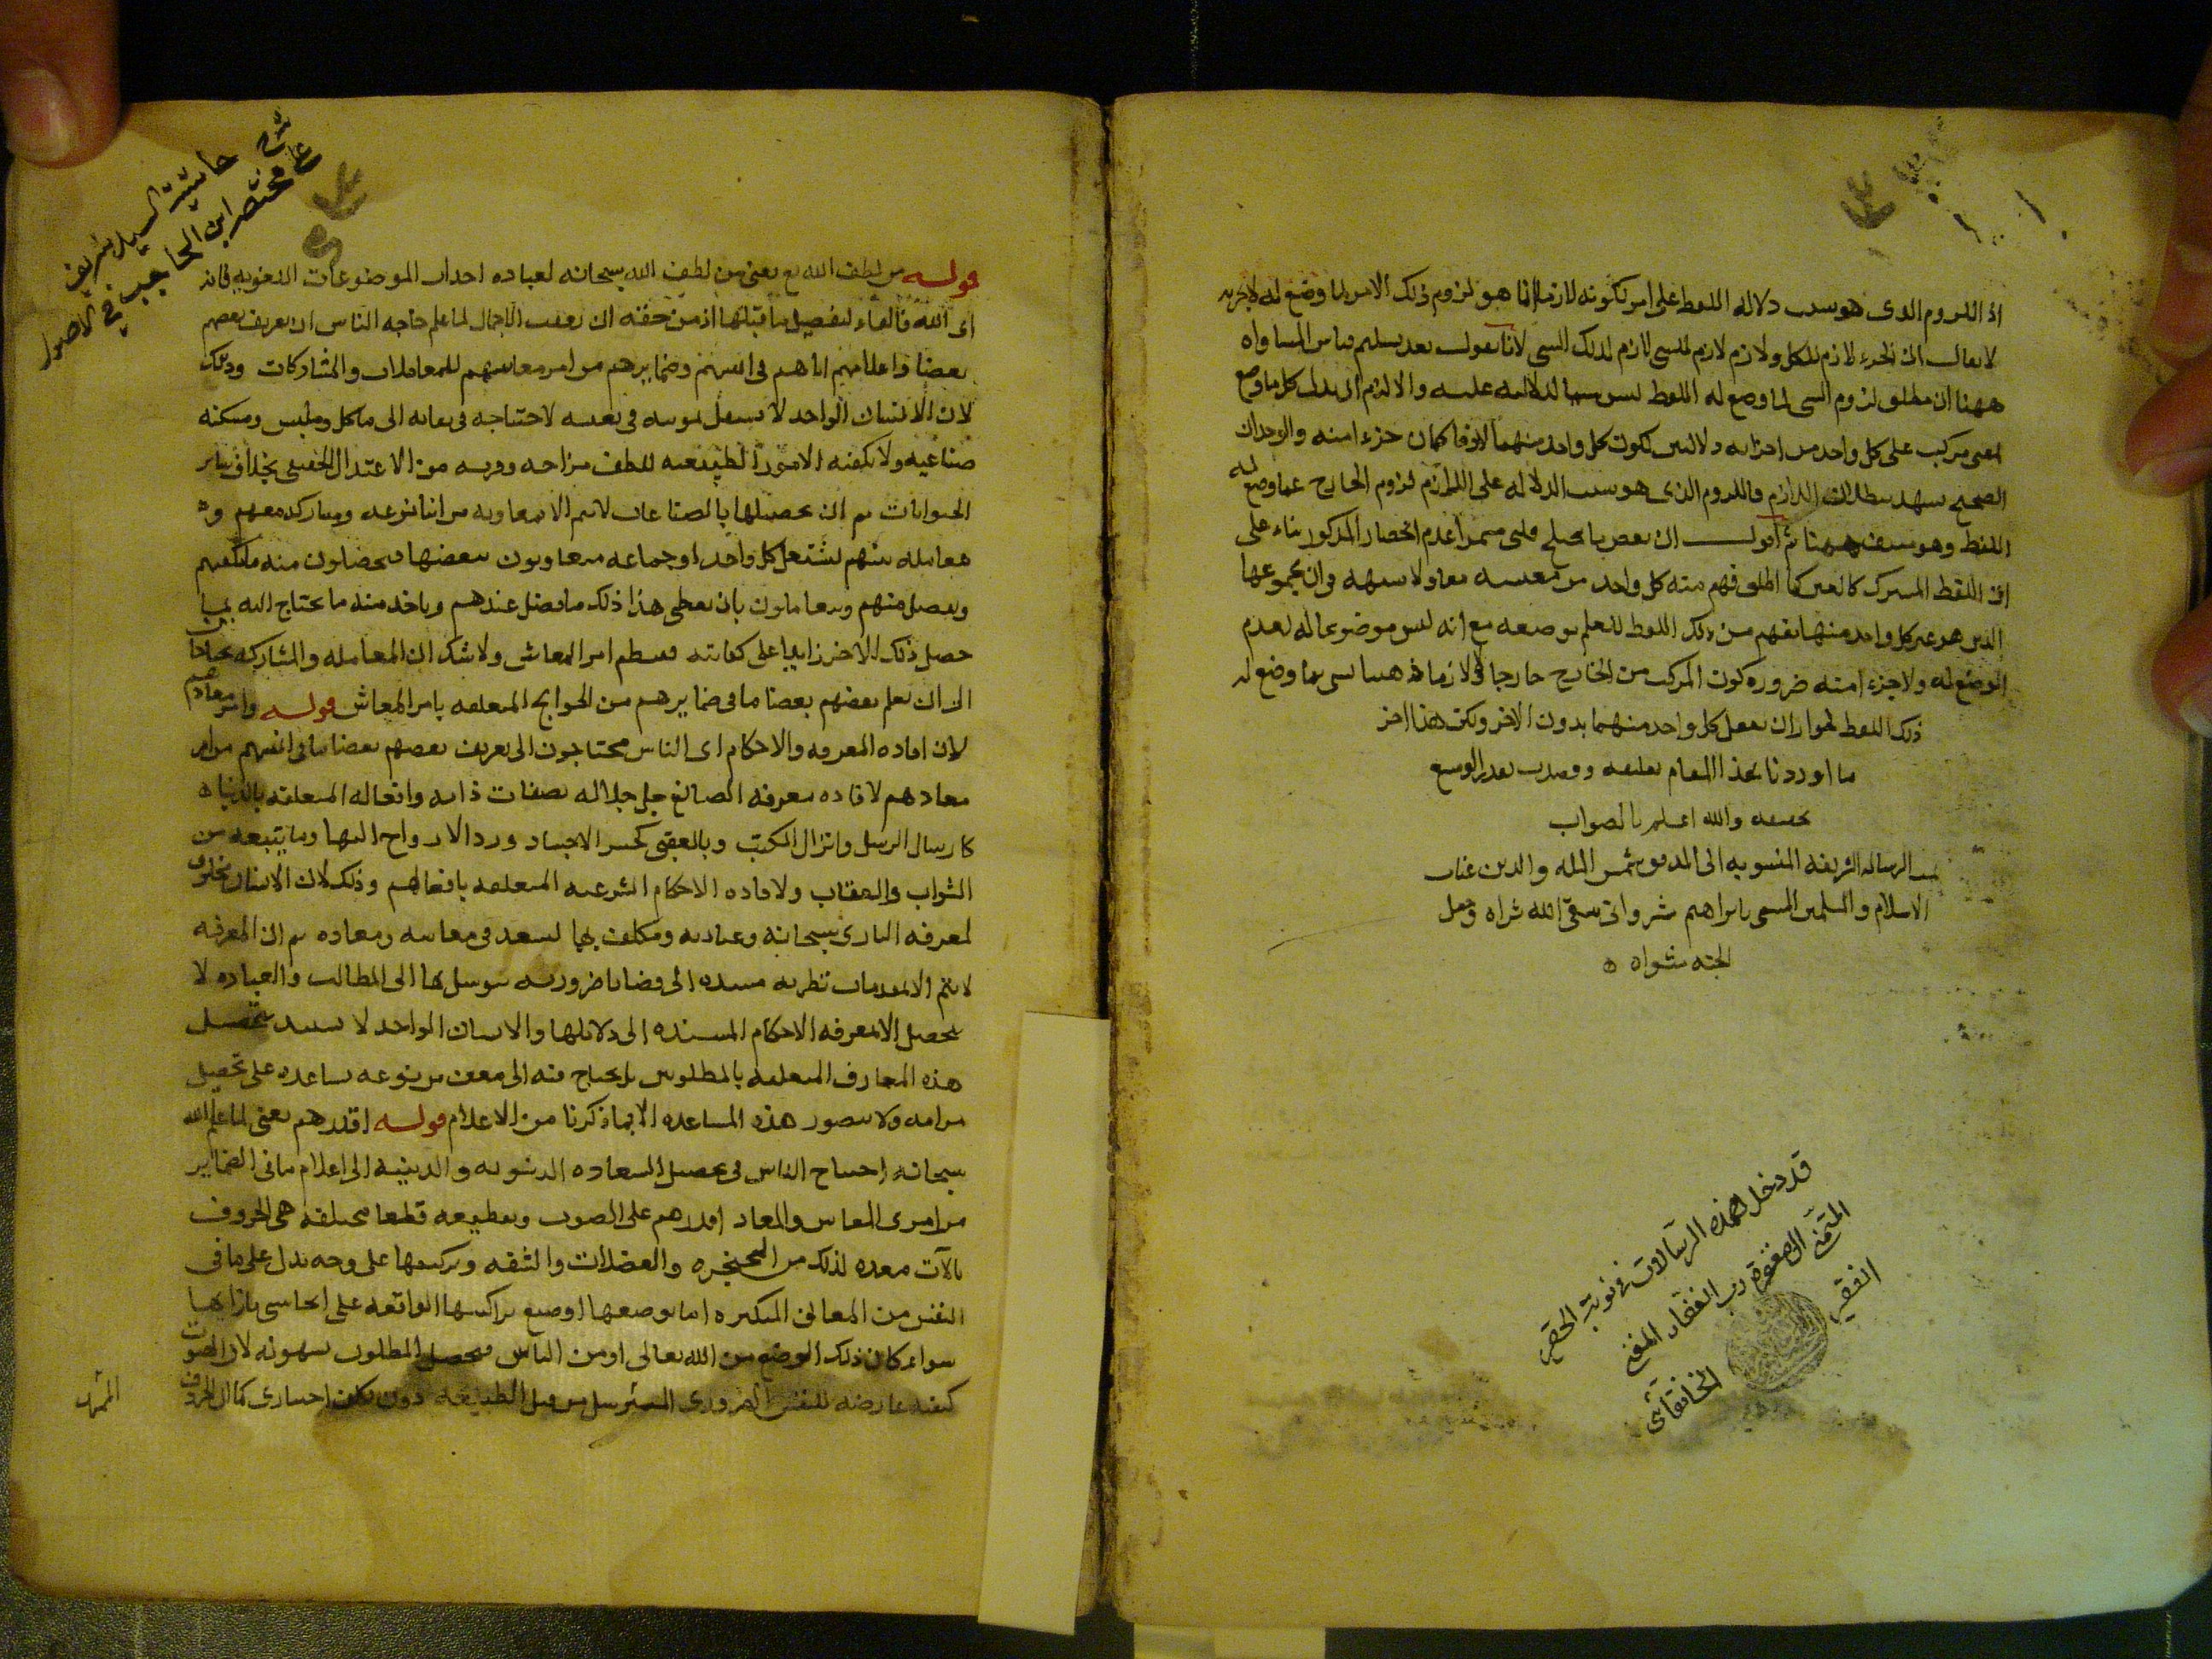 اذ اللزوم الذى هو سبب دلاله اللفظ على امر لكونه لازما انما هو لزوم ذلك الامر لما وضع له لا لجزئه
لا يقال ان الجزء لازم للكل ولازم لازم الشى لازم لذلك الشى لانا نقول بعد تسليم قياس المساواه
ههنا ان مطلق لزوم الشى لما وضع له اللفظ ليس سببا لدلالته عليه والا لزم ان يدل كل ما وضع
لمعنى مركب على كل واحد من اجزائه دلالتين لكون كل واحد منهما لازما كما ان جزء امنه والوجدان
الصحيح يشهد ببطلان اللازم فاللزوم الذى هو سبب الدلاله على اللازم لزوم الخارج عما وضع له
اللفظ وهو منتف ههنا ثم اقول ان بعض ما يصلح عدم انحصار المذكور بناء على
ان اللفظ المشترك كالعين كما اطلق فهم منه كل واحد من معنييه معا ولا شبهه فى ان مجموعها
الذى هو غير كل واحد منها يفهم من ذلك اللفظ للعلم بوضعه مع انه ليس موضوعا له لعدم
الوضع له ولا جزء امنه ضروره كون المركب من الخارج خارجا ولا لازما وضع له
ذلك اللفظ لجواز ان يعقل كل واحد منهما بدون الاخر وليكن هذا اخر
ما اوردنا بهذا المقام بقدر الوسع
تحقيقه والله اعلم بالصواب
تمت الرساله الشريفه المنسوبه الى المدقق شمس المله والدين غياث
الاسلام والمسلمين المسمى بابراهيم شروانى سقى الله ثراه وجعل
الجنه مثواه ه
قد دخل هذه الرسالات فى نوبة الحقير
المتمنى الى مغفرة رب الغفار المغنى
الفقير
الخانقاهى
شرح
حاشية السيد شريف
على مختصر ابن الحاجب فى الاصول
قوله من لطف الله تع يعنى من لطف الله سبحانه لعباده احداث الموضوعات اللغويه فانه
اى الله فالفاء لتفصيل ما قبلها اذ من حقه ان يعقب الاجمال لما علم حاجه الناس ان تعريف بعضهم
بعضا واعلامهم اياهم فى انفسهم وضمايرهم من امر معاشهم للمعاملات والمشاركات وذلك
لان الانسان الواحد لا يستقل بمونته فى تعيشه لاحتياجه فى بقائه الى ماكل وملبس ومسكنه
صناعيه ولا يكفيه الامور الطبيعيه للطف مزاجه وقربه من الاعتدال الحقيقى بخلاف ساير
الحيوانات ثم ان تحصيلها بالصناعات لا يتم الا بمعاونه من ابناء نوعه ومشاركه معهم و
معامله بينهم ليشتغل كل واحد او جماعه متعاونون ببعضها فيحصلون منه ما يكفيهم
ويفضل منهم ويتعاملون بان يعطى هذا ذلك ما فضل عندهم وياخذ منه ما يحتاج اليه مما
حصل ذلك الاخر زايدا على كفايته فينتظم امر المعاش ولا شك ان المعامله والمشاركه يحتاجان
الى ان يعلم بعضهم بعضا ما فى ضمايرهم من الحوايج المتعلقه بامر المعاش قوله وامر معادهم
لان افاده المعرفه والاحكام اى الناس محتاجون الى تعريف بعضهم بعضا ما فى انفسهم من امر
معادهم لافاده معرفه الصانع جل جلاله بصفات ذاته وافعاله المتعلقه بالدنيا
كارسال الرسل وانزال الكتب وبالعقبى كحشر الاجساد ورد الارواح اليها وما يتبعه من
الثواب والعقاب ولافاده الاحكام الشرعيه المتعلقه بافعالهم وذلك لان الانسان مخلوق
لمعرفه البارى سبحانه وعبادته ومكلف بهما ليسعد فى معاشه ومعاده ثم ان المعرفه
لا يتم الا بمقدمات نظريه مستنده الى قضايا ضروريه يتوسل بها الى المطالب والعباده لا
يحصل الا بمعرفه الاحكام المستنده الى دلائلها والانسان الواحد لا يستبد بتحصيل
هذه المعارف المتعلقه بالمطلوبين بل يحتاج فيه الى معين من نوعه يساعده على تحصيل
مرامه ولا يتصور هذه المساعده الا بما ذكرنا من الاعلام قوله اقدرهم يعنى لما علم الله
سبحانه احتياج الناس فى تحصيل السعاده الدنيويه والدينيه الى اعلام ما فى الضماير
من امرى المعاش والمعاد اقدرهم على الصوت وتقطيعه قطعا مختلفه هى الحروف
بالآت معده لذلك من الحنجره والعضلات والشفه وتركيبها على وجه يدل على ما فى
النفس من المعانى المتكثره اما بوضعها او وضع تراكيبها الواقعه على انحا شتى بازايها
سواء كان ذلك الوضع من الله تعالى او من الناس فيحصل المطلوب بسهوله لان الصوت
كيفيه عارضه للنفس الضرورى المسترسل من قبل الطبيعه دون تكلف اختيارى كما ان الحروف